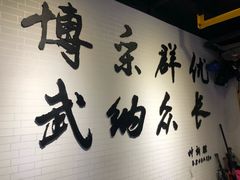 博采群优
武纳众长